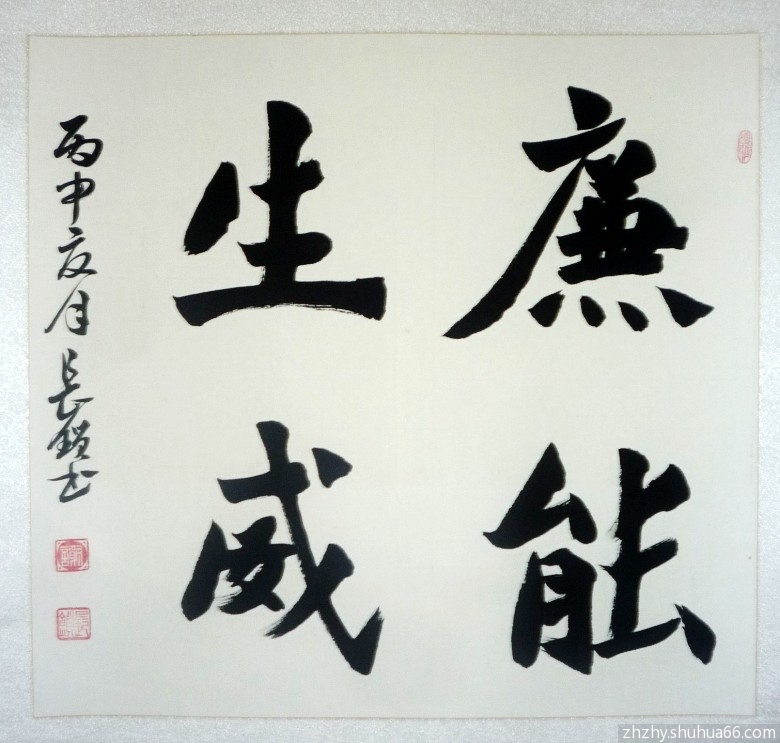 廉能
生威
丙申夏月長鎖书
zhzhy.shuhua66.com